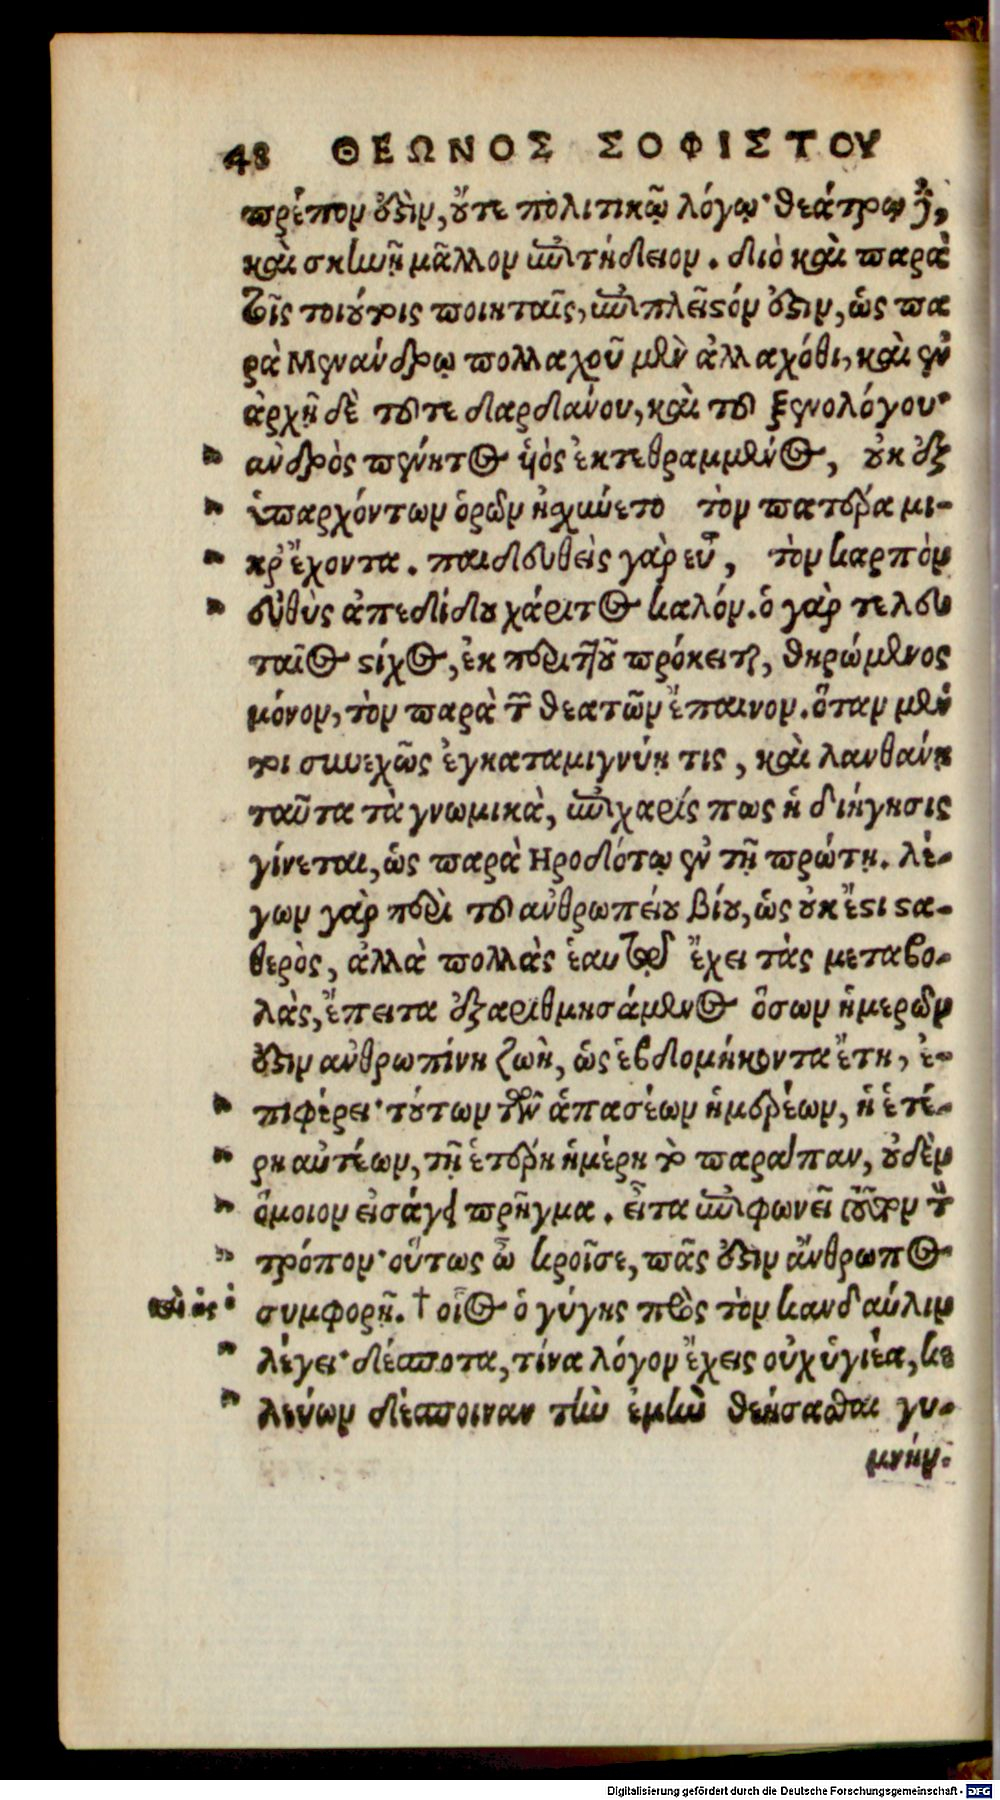 48 ΘΕΩΝΟΣ ΣΟΦΙΣΤΟΥ
πρέπον ἐστὶν, οὔτε πολιτικῷ λόγῳ· θεάτρῳ δὲ,
καὶ σκηνῇ μᾶλλον ἐπιτήδειον. διὸ καὶ παρὰ
τοῖς τοιούτοις ποιηταῖς, ἐπιπλεῖστόν ἐστιν, ὡς πα
ρὰ Μενάνδρῳ πολλαχοῦ μὲν ἀλλαχόθι, καὶ ἐν
ἀρχῇ δὲ τοῦτε δαρδάνου, καὶ τοῦ ξενολόγου·
ἀνδρὸς πένητος υἱὸς ἐκτεθραμμένος, οὐκ ἐξ
ὑπαρχόντων ὁρῶν ᾐσχύνετο τὸν πατέρα μι-
κρ' ἔχοντα. παιδευθεὶς γὰρ εὖ, τὸν καρπὸν
εὐθὺς ἀπεδίδου χάριτος καλόν. ὁ γὰρ τελευ
ταῖος στίχος, ἐκ περιττοῦ πρόκειται, θηρώμενος
μόνον, τὸν παρὰ τῶν θεατῶν ἔπαινον. ὅταν μέν
τοι συνεχῶς ἐγκαταμιγνύῃ τις, καὶ λανθάνῃ
ταῦτα τὰ γνωμικὰ, ἐπιχαρίς πως ἡ διήγησις
γίνεται, ὡς παρὰ Ηροδότῳ ἐν τῇ πρώτῃ. λέ-
γων γὰρ περὶ τοῦ ἀνθρωπείου βίου, ὡς οὐκ ἔστι στα-
θερὸς, ἀλλὰ πολλὰς ἑαυτοῦ ἔχει τάς μεταβο-
λὰς, ἔπειτα ἐξαριθμησάμενος ὅσων ἡμερῶν
ἐστιν ἀνθρωπίνη ζωὴ, ὡς ἑβδομήκοντα ἔτη, ἐ-
πιφέρει· τούτων τῶν ἁπασέων ἡμερέων, ἡ ἑτέ-
ρη αὐτέων, τῇ ἑτέρῃ ἡμέρῃ τὸ παράπαν, οὐδὲν
ὅμοιον εἰσάγει πρῆγμα. εἶτα ἐπιφωνεῖ τοῦτον τὸν
τρόπον· οὕτως ὦ κροῖσε, πᾶς ἐστιν ἄνθρωπος
συμφορή. † οἷος ὁ γύγης πρὸς τὸν κανδαύλην
λέγει· δέσποτα, τίνα λόγον ἔχεις οὐχ ὑγιέα, κε
λεύων δέσποιναν τὴν ἐμὴν θεήσασθαι γυ-
μνήν.
Digitalisierung gefördert durch die Deutsche Forschungsgemeinschaft - DFG